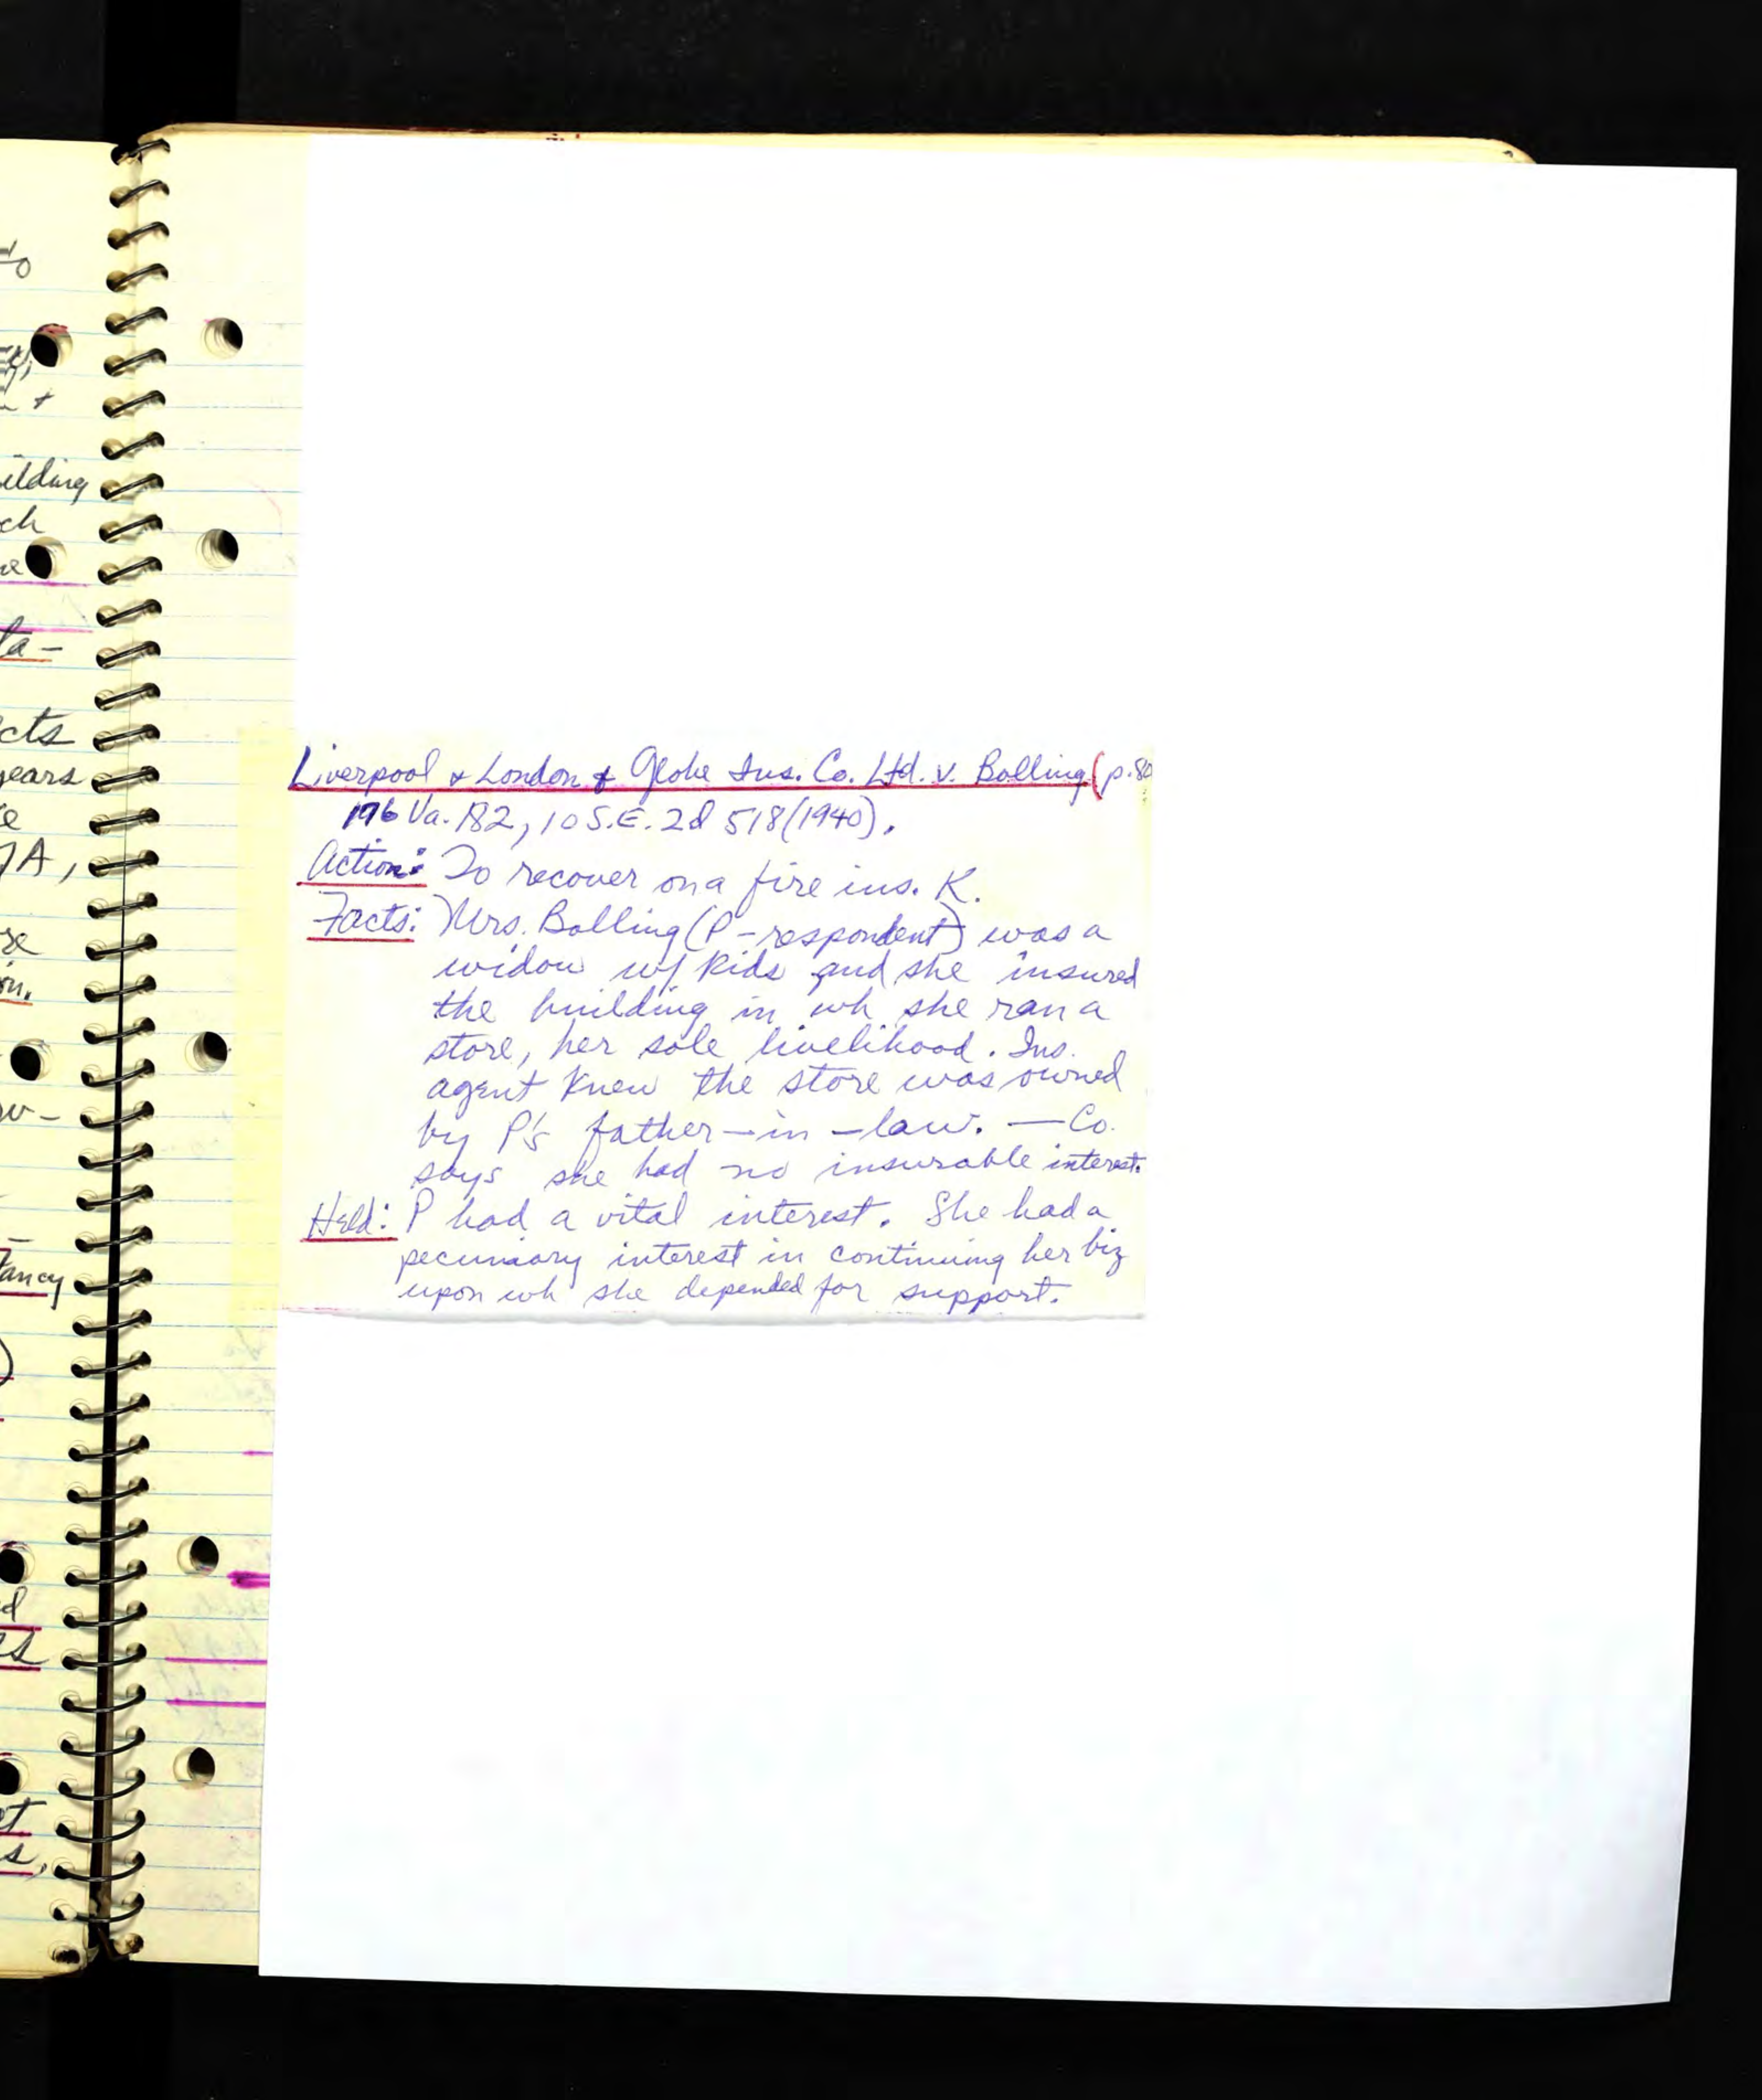 to
+
ilding
ch
la-
cts
years
e
7A,
se
on.
w-
tancy
d
es
et
s,
Liverpool & London & Globe Ins. Co. Ltd. v. Bolling (p. 80
176 Va. 182, 10 S.E. 2d 518 (1940).
Action: To recover on a fire ins. K.
Facts: Mrs. Bolling (P-respondent) was a
widow w/ kids and she insured
the building in wh she ran a
store, her sole livelihood. Ins.
agent knew the store was owned
by P's father-in-law. — Co.
says she had no insurable interest.
Held: P had a vital interest. She had a
pecuniary interest in continuing her biz
upon wh she depended for support.